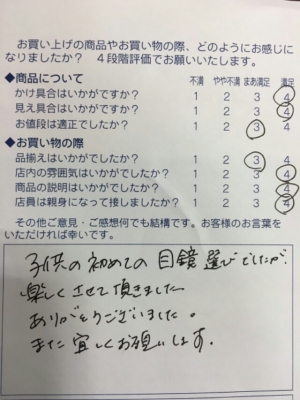 お買い上げの商品やお買い物の際、どのようにお感じに
なりましたか？ 4段階評価でお願いいたします。
◆商品について 不満 やや不満 まあ満足 満足
かけ具合はいかがですか？ 1 2 3 4
見え具合はいかがですか？ 1 2 3 4
お値段は適正でしたか？ 1 2 3 4
◆お買い物の際
品揃えはいかがでしたか？ 1 2 3 4
店内の雰囲気はいかがでしたか？ 1 2 3 4
商品の説明はいかがでしたか？ 1 2 3 4
店員は親身になって接しましたか？ 1 2 3 4
その他ご意見・ご感想何でも結構です。お客様のお言葉を
いただければ幸いです。
子供の初めての目鏡選びでしたが
楽しくさせて頂きました
ありがとうございました。
また宜しくお願いします。